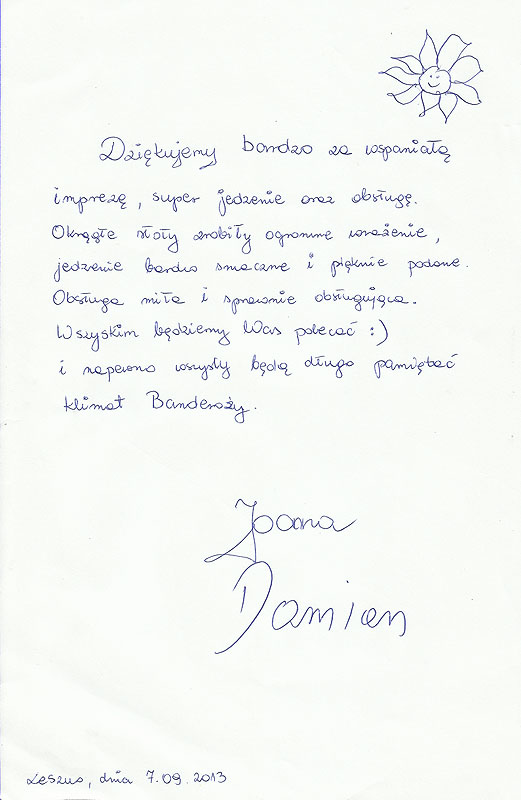 Dziękujemy bardzo za wspaniałą
imprezę, super jedzenie oraz obsługę.
Okrągłe stoły zrobiły ogromne wrażenie,
jedzenie bardzo smaczne i pięknie podane.
Obsługa miła i sprawnie obsługująca.
Wszyskim będziemy Was polecać :)
i napewno wszyscy będą długo pamiętać
klimat Banderoży.
Joana
Damian
Leszno, dnia 7.09.2013